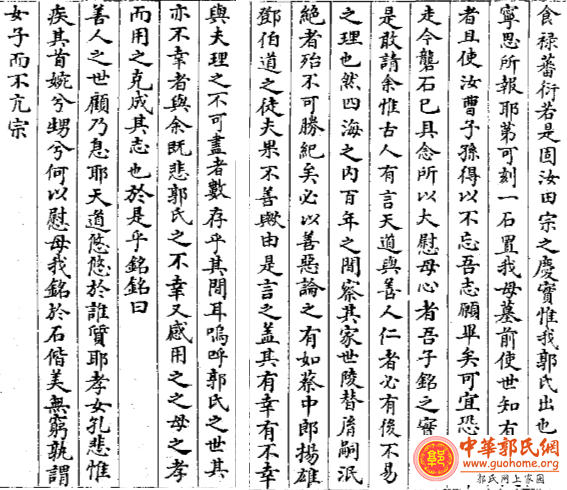 食禄蕃衍若是固汝田宗之慶實惟我郭氏出也
寧思所報耶第可刻一石置我母墓前使世知有
者且使汝曹子孫得以不忘吾志願畢矣可宜恐
走今礱石已具念所以大慰母心者吾子銘之實
是敢請余惟古人有言天道與善人仁者必有後不易
之理也然四海之内百年之間察其家世陵替廣嗣泯
絶者殆不可勝紀矣必以善惡論之有如蔡中郎揚雄
鄧伯道之徒夫果不善歟由是言之蓋其有幸有不幸
與夫理之不可盡者數存乎其間耳嗚呼郭氏之世其
亦不幸者與余既悲郭氏之不幸又感用之之母之孝
而用之克成其志也於是乎銘銘曰
善人之世顧乃息耶天道悠悠於誰質耶孝女孔悲惟
疾其首婉兮甥兮何以慰母我銘於石偕美無窮孰謂
女子而不亢宗
中華郭氏網
www.guohome.org
郭氏网上家园